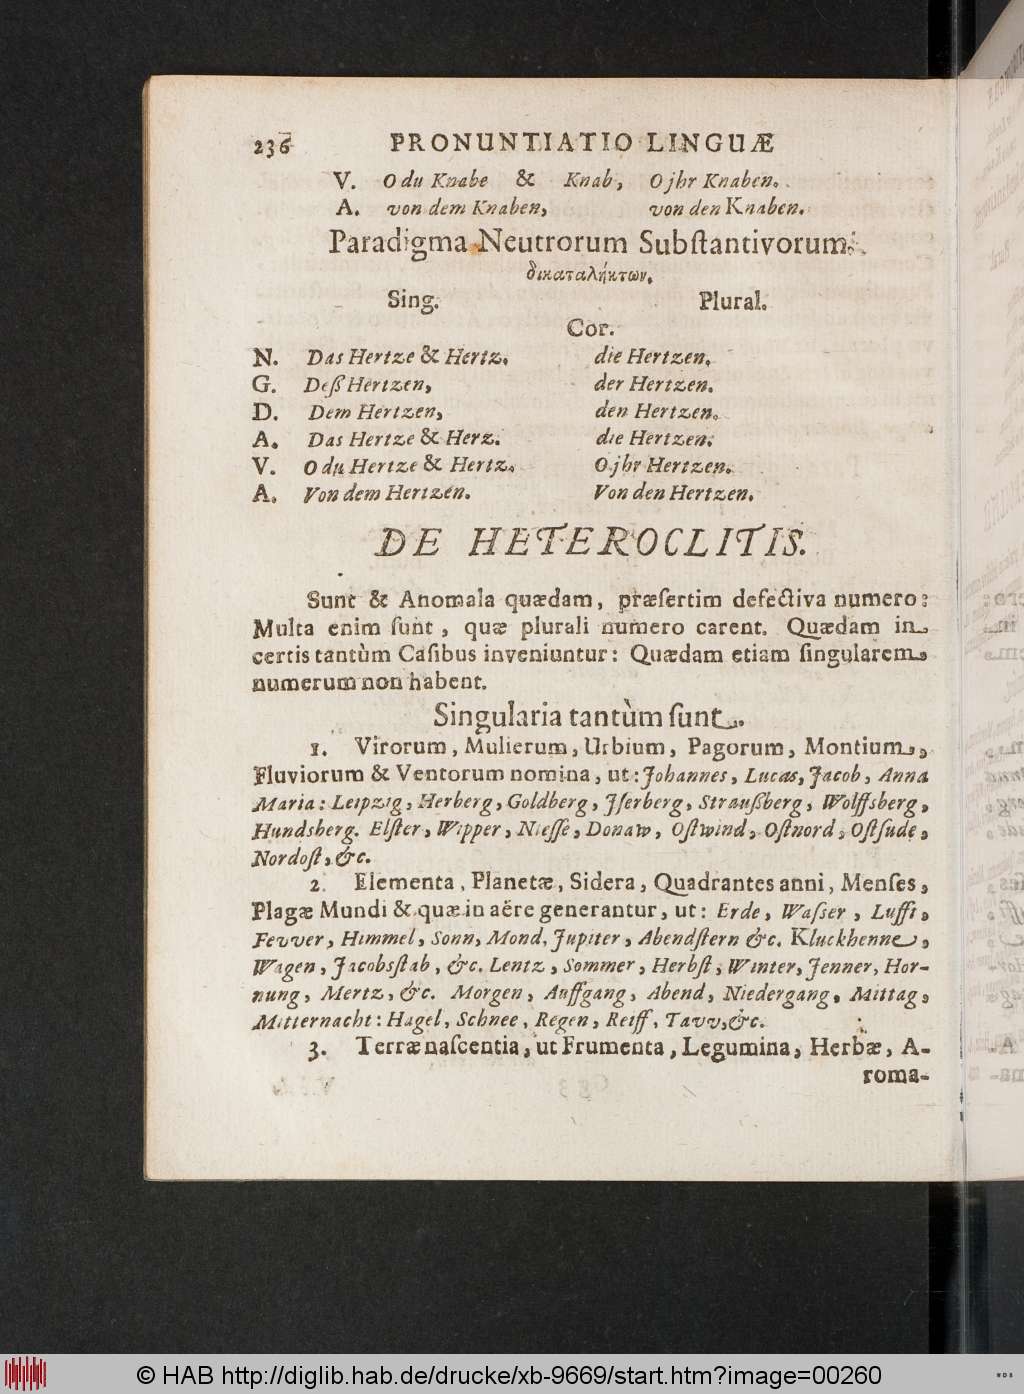 236 PRONUNTIATIO LINGUÆ
V. O du Knabe & Knab, O jhr Knaben.
A. von dem Knaben, von den Knaben.
Paradigma Neutrorum Subſtantivorum
δικαταλήκτων.
Sing. Plural.
Cor.
N. Das Hertze & Hertz. die Hertzen.
G. Deß Hertzen, der Hertzen.
D. Dem Hertzen, den Hertzen.
A. Das Hertze & Herz. die Hertzen.
V. O du Hertze & Hertz. O jhr Hertzen.
A. Von dem Hertzen. Von den Hertzen.
DE HETEROCLITIS.
Sunt & Anomala quædam, præſertim defectiva numero:
Multa enim ſunt, quæ plurali numero carent. Quædam in
certis tantùm Caſibus inveniuntur: Quædam etiam ſingularem
numerum non habent.
Singularia tantùm ſunt.
1. Virorum, Mulierum, Urbium, Pagorum, Montium,
Fluviorum & Ventorum nomina, ut: Johannes, Lucas, Jacob, Anna
Maria: Leipzig, Herberg, Goldberg, Jſerberg, Straußberg, Wolffsberg,
Hundsberg. Elſter, Wipper, Nieſſe, Donaw, Oſtwind, Oſtnord, Oſtſude,
Nordoſt, &c.
2. Elementa, Planetæ, Sidera, Quadrantes anni, Menſes,
Plagæ Mundi & quæ in aëre generantur, ut: Erde, Waſser, Lufft,
Fevver, Himmel, Sonn, Mond, Jupiter, Abendſtern &c. Kluckhenne,
Wagen, Jacobsſtab, &c. Lentz, Sommer, Herbſt, Winter, Jenner, Hor-
nung, Mertz, &c. Morgen, Auffgang, Abend, Niedergang, Mittag,
Mitternacht: Hagel, Schnee, Regen, Reiff, Tavv, &c.
3. Terræ naſcentia, ut Frumenta, Legumina, Herbæ, A-
roma-
© HAB http://diglib.hab.de/drucke/xb-9669/start.htm?image=00260